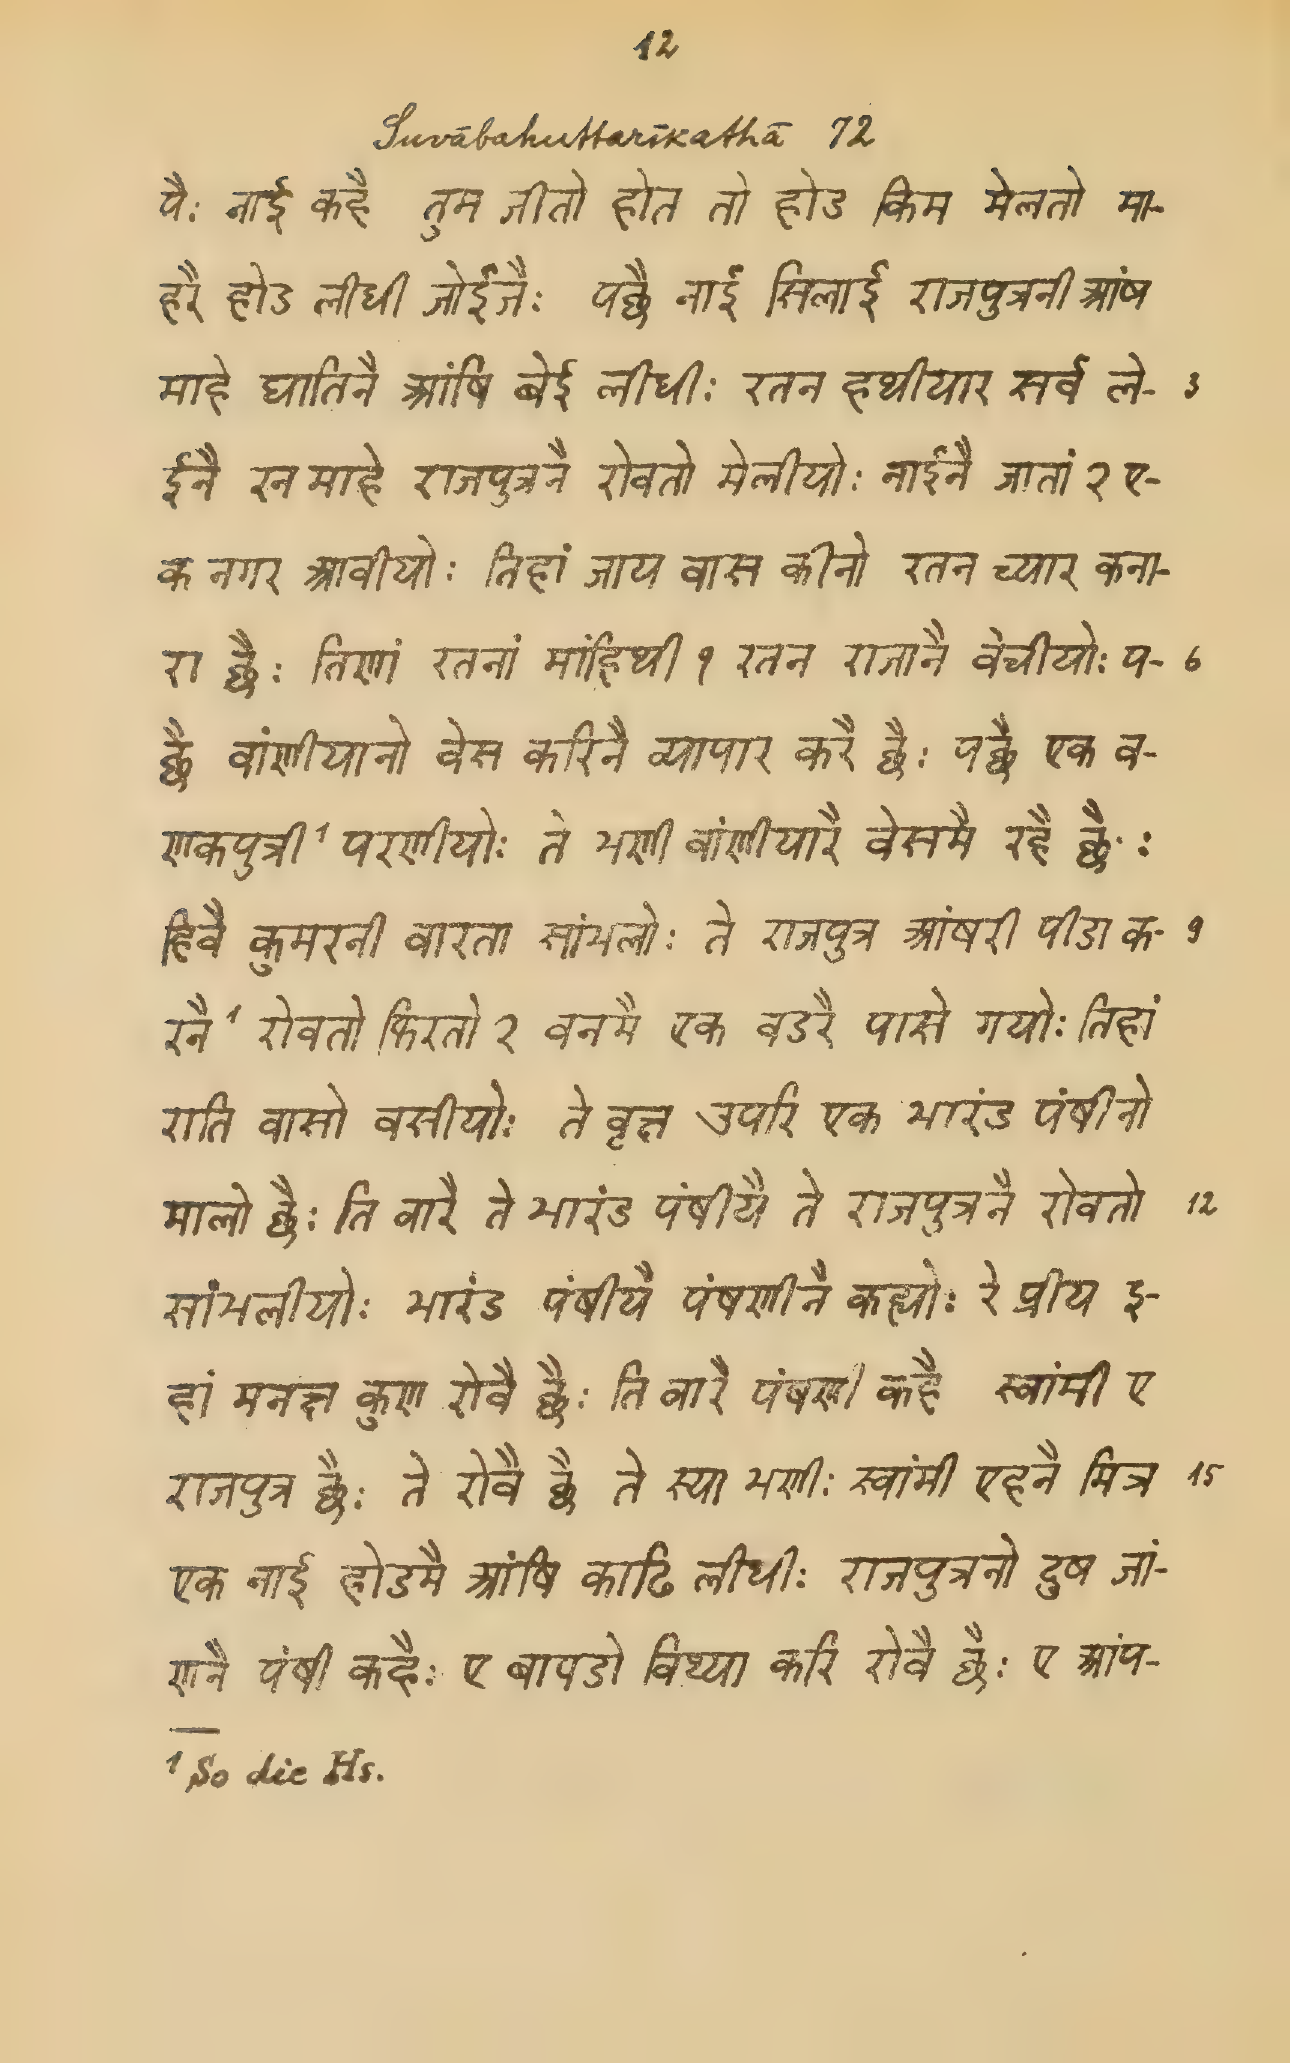 12
Suvābahuttarīkathā 72
पै: नाई कहै तुम जीतो होत तो होड किम मेलतो मा-
हरै होड लीधी जोईजै: पछै नाई सिलाई राजपुत्रनी आंष
माहे घातिनै आंषि बेई लीधी: रतन हथीयार सर्व ले- 3
ईनै रन माहे राजपुत्रनै रोवतो मेलीयो: नाईनै जातां २ ए-
क नगर आवीयो: तिहां जाय वास कीनो रतन च्यार कना-
रा छै: तिणां रतनां मांहिथी १ रतन राजानै वेचीयो: प- 6
छै वांणीयानो वेस करिनै व्यापार करै छै: पछै एक व-
णकपुत्री¹ परणीयो: ते भणी वांणीयारै वेसमै रहै छै:
हिवै कुमरनी वारता सांभलो: ते राजपुत्र आंषरी पीडा क- 9
रनै¹ रोवतो फिरतो २ वनमै एक वडरै पासे गयो: तिहां
राति वासो वसीयो: ते वृक्ष उपरि एक भारंड पंषीनो
मालो छै: ति वारै ते भारंड पंषीयै ते राजपुत्रनै रोवतो 12
सांभलीयो: भारंड पंषीयै पंषणीनै कह्यो: रे प्रीय इ-
हां मनक्ष कुण रोवै छै: ति वारै पंषणी कहै स्वांमी ए
राजपुत्र छै: ते रोवै छै ते स्या भणी: स्वांमी एहनै मित्र 15
एक नाई होडमै आंषि काढि लीधी: राजपुत्रनो दुष जां-
णनै पंषी कहै: ए बापडो विथ्या करि रोवै छै: ए आंप-
¹ So die Hs.